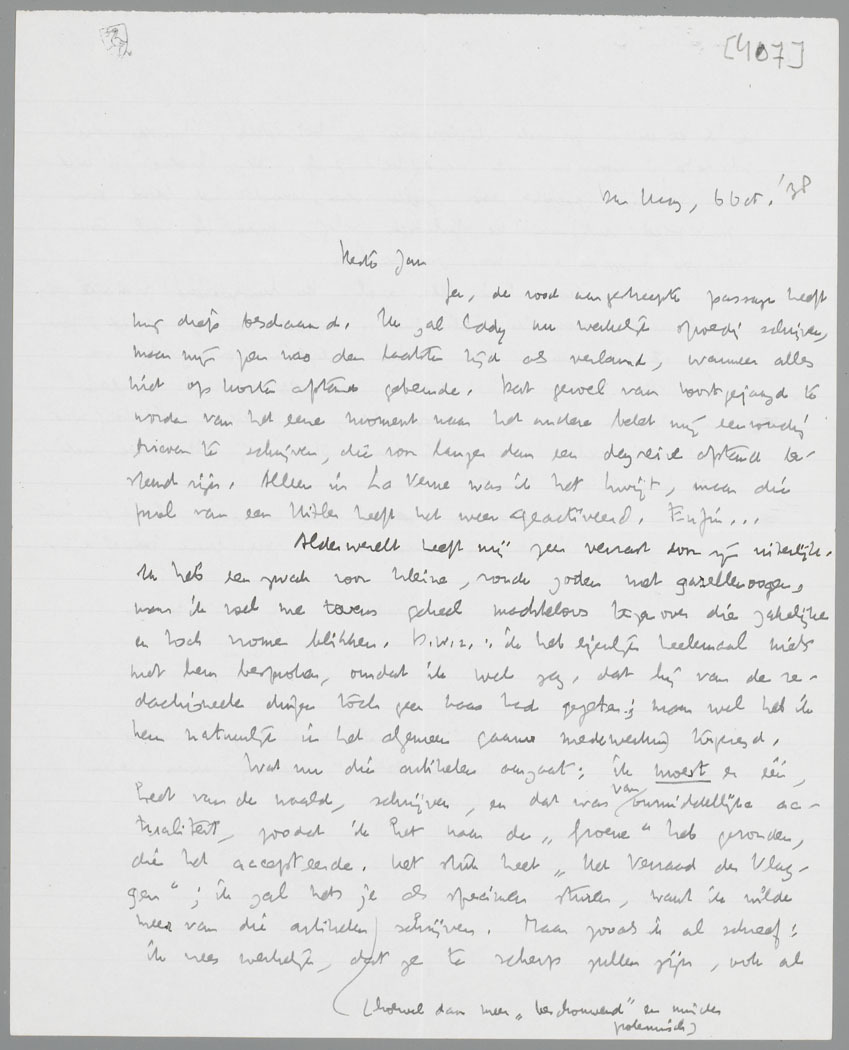 [407]
Den Haag, 6 Oct. '38
Beste Jan
Ja, de rood aangestreepte passage heeft
mij diep beschaamd. Ik zal Eddy nu werkelijk spoedig schrijven,
maar mijn pen was den laatsten tijd als verlamd, wanneer alles
niet op korten afstand gebeurde. Dat gevoel van voortgejaagd te
worden van het eene moment naar het andere belet mij eenvoudig
brieven te schrijven, die voor langer dan een dagreize afstand be-
stemd zijn. Alleen in La Verne was ik het kwijt, maar die
prul van een Hitler heeft het weer geactiveerd. Enfin...
Alderwerelt heeft mij zeer verrast door zijn uiterlijk.
Ik heb een zwak voor kleine, ronde joden met gazellenoogen,
maar ik voel me tevens geheel machteloos tegenover die zakelijke
en toch vrome blikken. D.w.z.: ik heb eigenlijk heelemaal niets
met hem besproken, omdat ik wel zag, dat hij van de re-
dactioneele dingen toch geen kaas had gegeten; maar wel heb ik
hem natuurlijk in het algemeen gaarne medewerking toegezegd.
Wat nu die artikelen aangaat: ik moest er één,
heet van de naald, schrijven, en dat was van onmiddellijke ac-
tualiteit, zoodat ik het naar de „Groene" heb gezonden,
die het accepteerde. Het stuk heet „Het Verraad der Vlag-
gen"; ik zal het je als specimen sturen, want ik wilde
meer van die artikelen schrijven. Maar zooals ik al schreef:
ik vrees werkelijk, dat ze te scherp zullen zijn, ook al
(hoewel dan meer „beschouwend" en minder
polemisch)